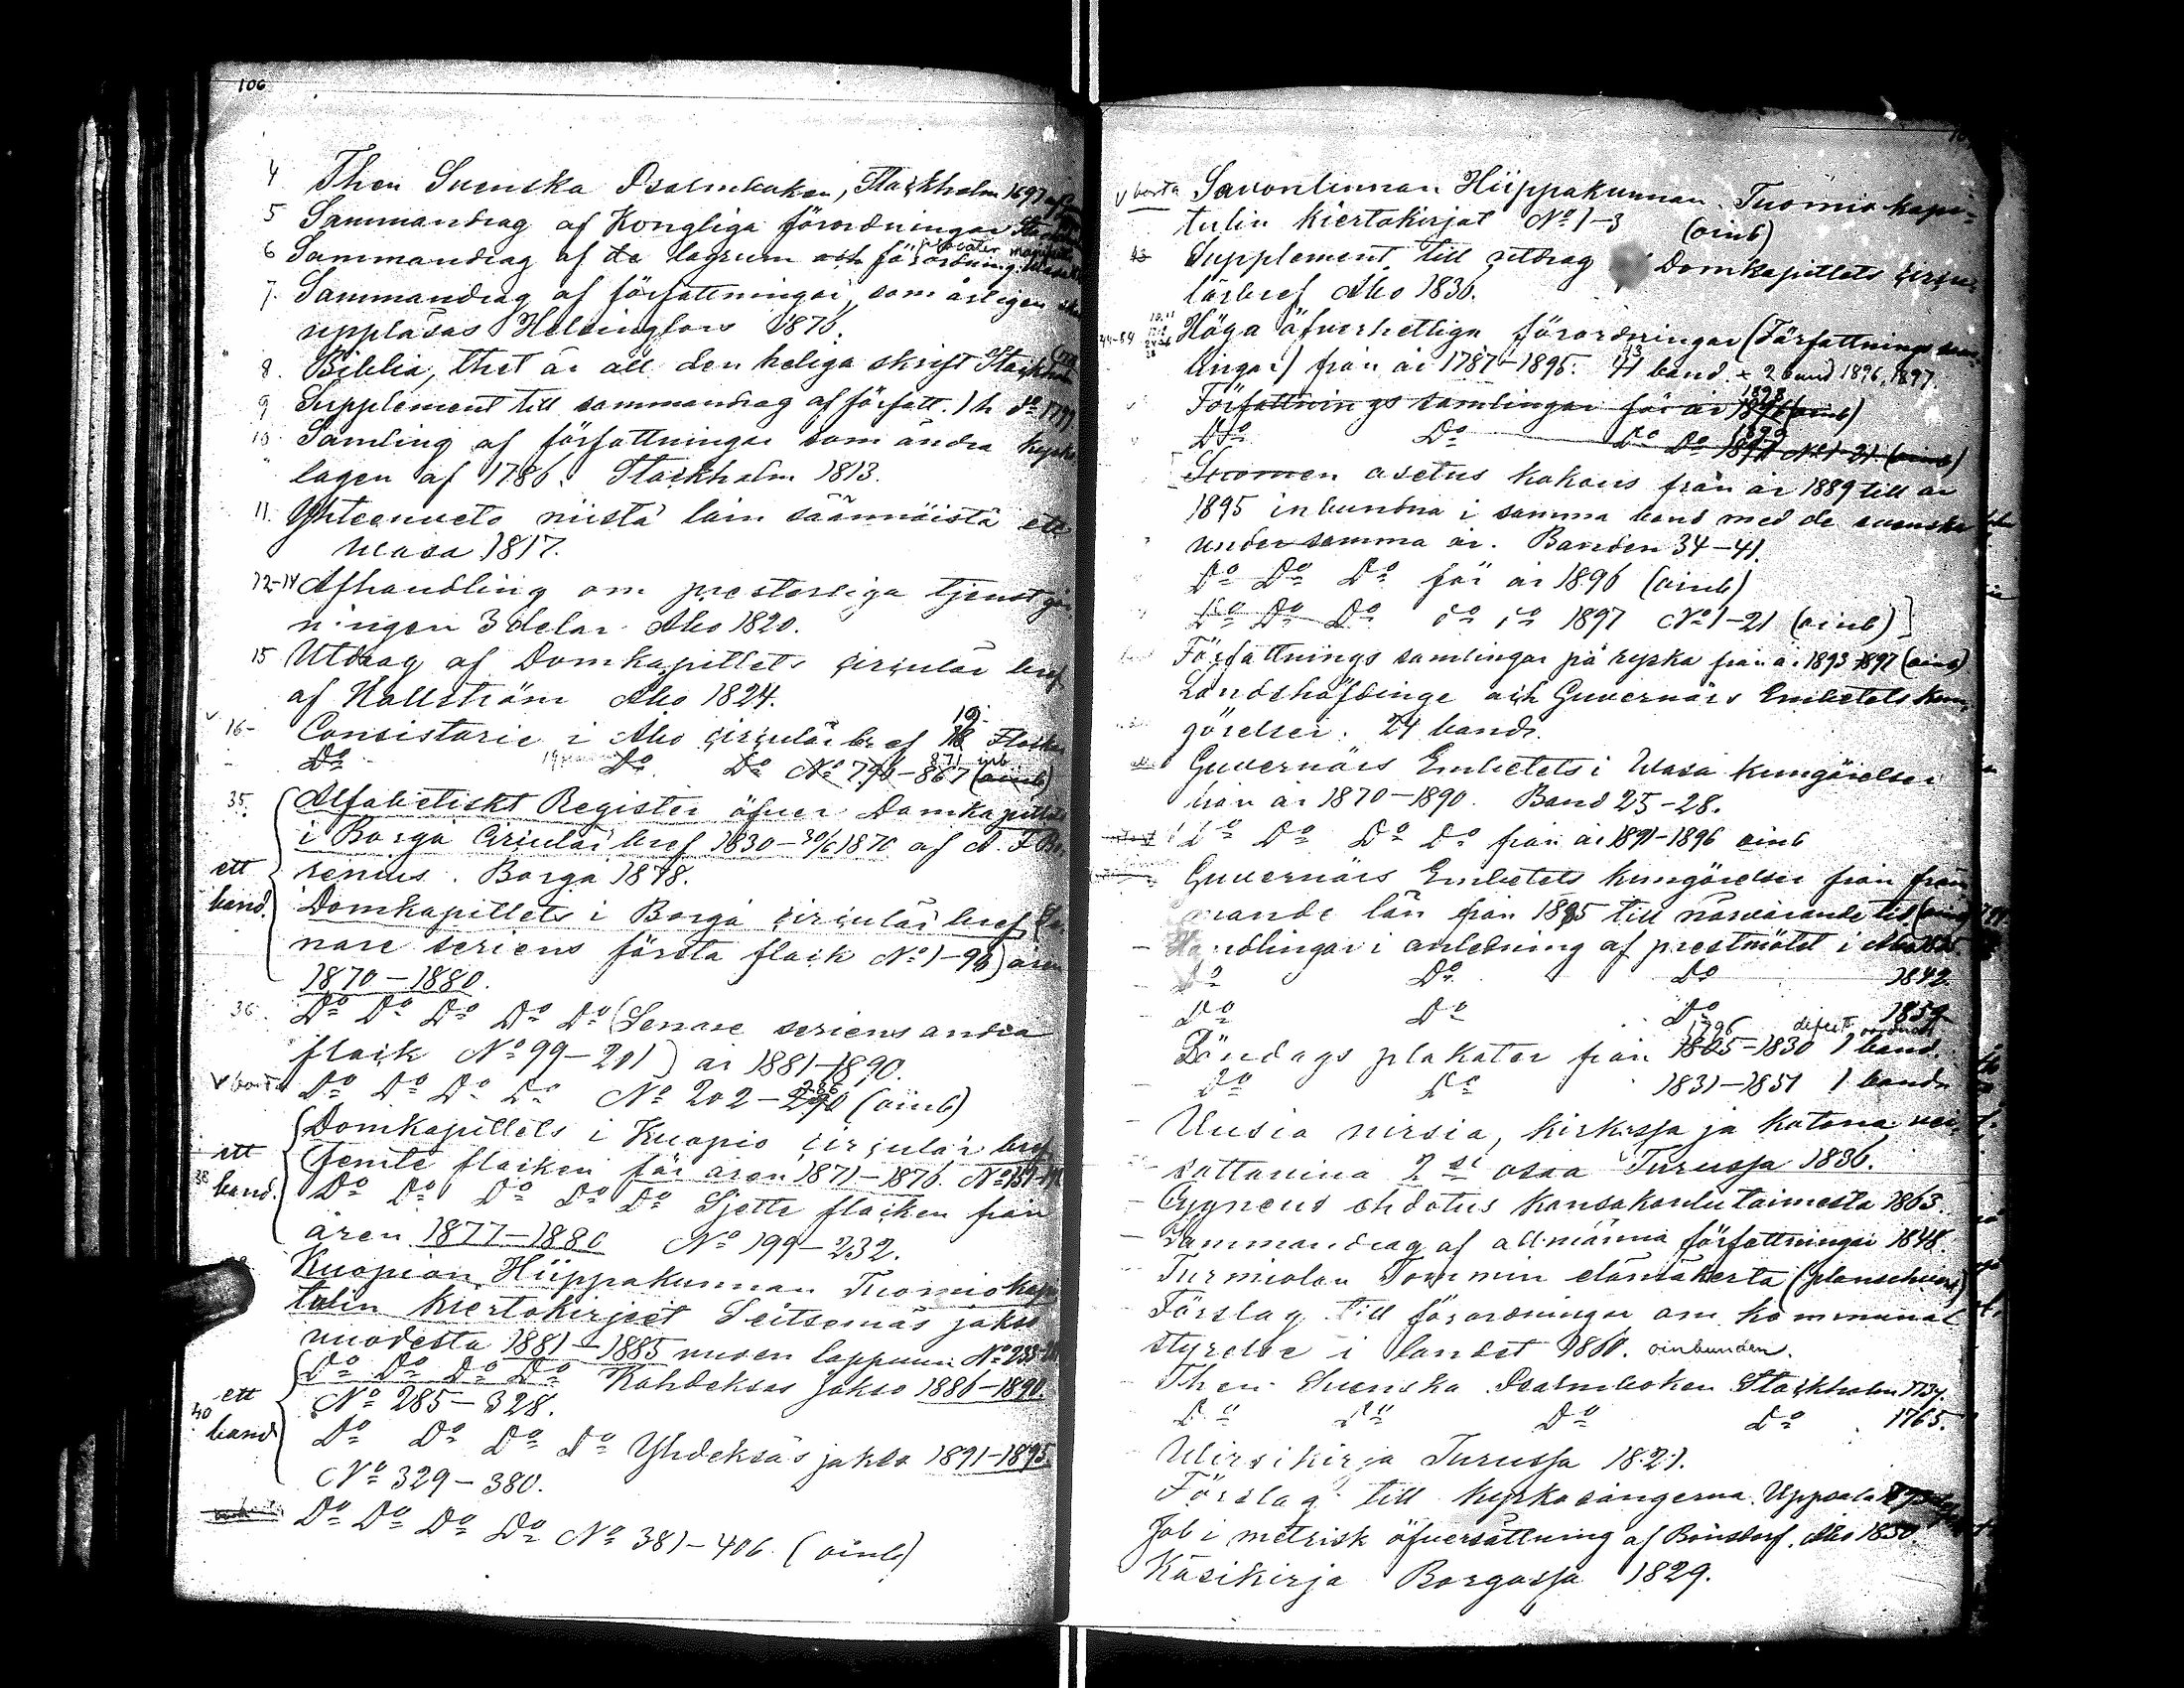 106
4 Then Svenska Psalmboken, Stockholm 1697
5 Sammandrag af Kongliga förordningar
6 Sammandrag af de lagrum och förordning.
7. Sammandrag af författningar, som årligen
uppläsas Helsingfors 1876.
8. Biblia, thet är all den heliga skrift Stockholm
9 Supplement till sammandrag af författ. 1 h do 1799
10. Samling af författningar som ändra kyrko
lagen af 1786. Stockholm 1813.
11. Yhteenveto niistä lain säännöistä ett
Wasa 1817.
12-14 Afhandling om presterliga tjenstgör
ningen 3 delar Åbo 1820.
15 Utdrag af Domkapitlets circulär bref
af Hallström Åbo 1824.
v 16- Consistorie i Åbo circulär bref 18 19. Flocken
Do Do Do No 790-867 871 inb (oinb)
35. Alfabetiskt Register öfver Domkapitlets
i Borgå Circulär bref 1830-30/6 1870 af A. F. Bo
ett renius. Borgå 1878.
band. Domkapitlets i Borgå circulär bref (Se
nare seriens första flock No 1-98) åren
1870-1880.
36. Do Do Do Do Do (Senare seriens andra
flock No 99-201) år 1881-1890.
v borta Do Do Do Do No 202-290 (oinb)
Domkapitlets i Kuopio circulär bref
ett femte flocken för åren 1871-1876. No 151-19
38 band. Do Do Do Do Do Sjette flocken från
åren 1877-1880 No 199-232.
Kuopion Hiippakunnan Tuomiokapi
tulin kiertokirjeet Seitsemäs jakso
vuodesta 1881-1885 vuoden loppuun No 233-
Do Do Do Do Kahdeksas jakso 1886-1890.
ett No 285-328.
40 band Do Do Do Do Yhdeksäs jakso 1891-1895
No 329-380.
Do Do Do Do No 381-406. (oinb)
v borta Savonlinnan Hiippakunnan Tuomiokapi-
tulin kiertokirjat No 1-3 (oinb)
43 Supplement till utdrag Domkapitlets circu-
lärbref Åbo 1836.
44-84 Höga öfverhetliga förordningar (Författnings sam-
lingar) från år 1787-1895. 41 43 band. + 2 band 1896, 1897.
Författnings samlingar för år 1896 1898 (oinb)
Do Do Do Do 1897 1899 No 1-21 (oinb)
[Suomen asetus kokous från år 1889 till år
1895 inbundna i samma band med de svenska
under samma år. Banden 34-41.
Do Do Do för år 1896 (oinb)
Do Do Do do do 1897 No 1-21 (oinb)]
Författnings samlingar på ryska från år 1893-1897 (oinb)
Landshöfdinge och Guvernörs Embetets kun-
görelser. 24 band.
Guvernörs Embetets i Wasa kungörelser
från år 1870-1890. Band 25-28.
Do Do Do Do från år 1891-1896 oinb
Guvernörs Embetets kungörelser från främ
mande län från 1885 till närvarande tid (oinb)
- Handlingar i anledning af prestmötet i Åbo
Do Do Do 1842.
Do Do Do 1859
Böndags plakater från 1805 1796-1830 defect 1 band.
- Do Do 1831-1851 1 band.
- Uusia virsiä, kirkossa ja kotona vei-
sattavina 2si osaa Turussa 1836.
- Cygneus ehdotus kansakoulutoimesta 1863.
- Sammandrag af allmänna författningar 1848.
- Turmiolan Tommin elämäkerta (planschverk)
Förslag till förordningar om kommunal
styrelse i landet 1860. oinbunden.
- Then Svenska Psalmboken Stockholm 1734.
Do Do Do Do 1765.
- Wirsikirja Turussa 1821.
Förslag till kyrkosångerna. Uppsala
Job i metrisk öfversättning af Bonsdorf. Åbo 1830.
Käsikirja Borgossa 1829.